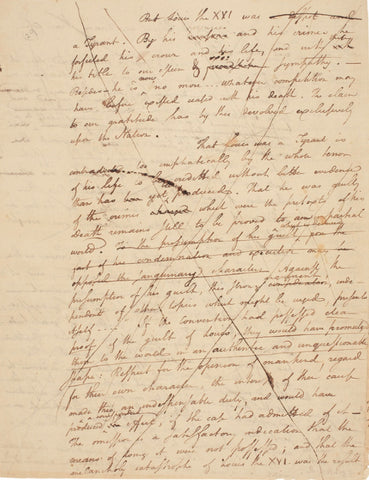 But Louis the XVI was
a Tyrant. By his and his crimes he
forfeited his crown and life, and with it
his title to our esteem sympathy.
Besides he is no more. Whatever competition may
have before existed ceased with his death. The claim
to our gratitude has by this devolved exclusively
upon the Nation.
That Louis was a Tyrant is
contradicted too emphatically by the whole tenor
of his life to be credited without better evidence
than has yet produced. That he was guilty
of the crimes which were the pretexts of his
death remains still to be proved to an impartial
world. In the presumption of his guilt from the
fact of his condemnation and execution may be
opposed the sanguinary character Against the
presumption of his guilt, one strong consideration, inde-
pendent of other topics which might be urged, presents
itself. If the convention had possessed clear
proof of the guilt of Louis, they would have promulged
them to the world in an authentic and unquestionable
shape. Respect for the opinion of mankind, regard
for their own character, the interest of their cause
made this an indispensable duty, and would have
produced effect, if the case had admitted of it
The omission is a satisfactory indication that the
means of doing it were not possessed; and that the
melancholy catastrophe of Louis the XVI. was the result